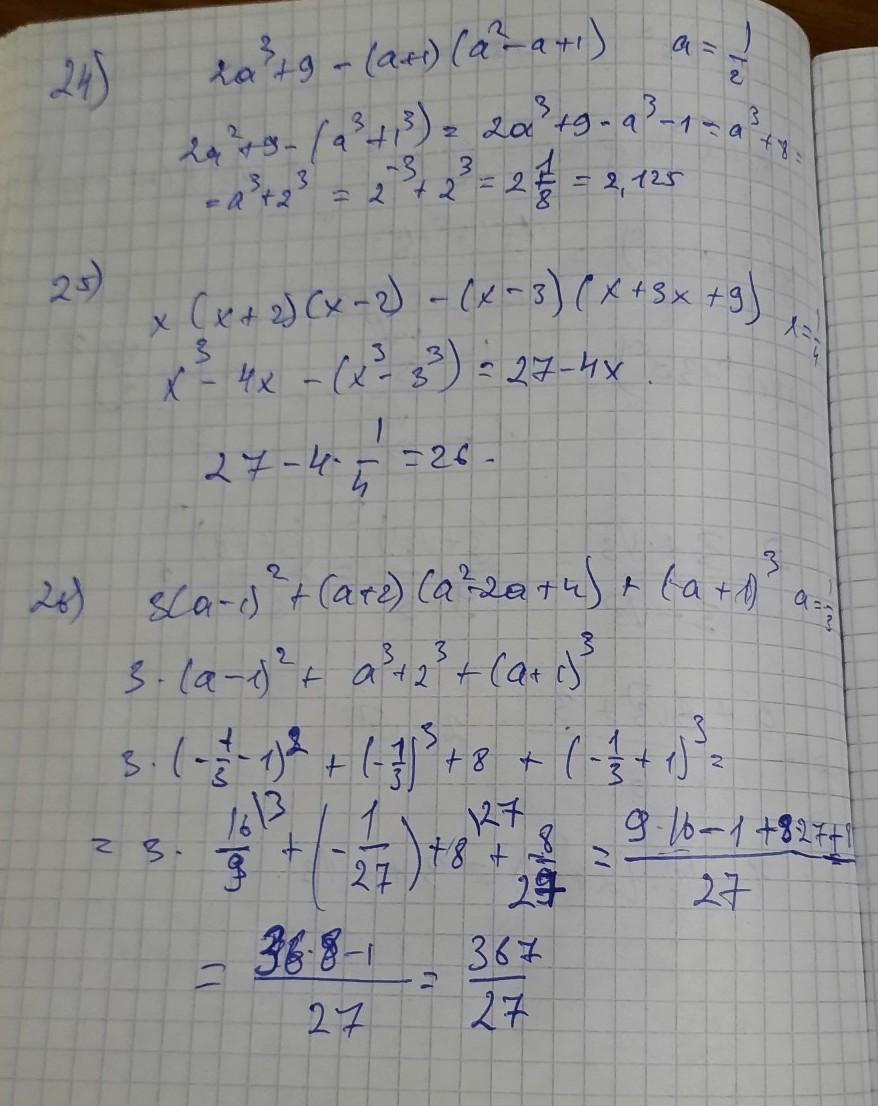 24) 2a³+9 - (a+1)(a²-a+1) a = 1/2
2a²+9-(a³+1³) = 2a³+9-a³-1 = a³+8 =
= a³+2³ = 2⁻³+2³ = 2 1/8 = 2,125
25)
x(x+2)(x-2) - (x-3)(x+3x+9) x=1/4
x³-4x-(x³-3³) = 27-4x.
27-4·1/4 = 26-
26) 3(a-1)²+(a+2)(a²-2a+4)+(-a+1)³ a=-1/3
3·(a-1)²+a³+2³+(a+1)³
3·(-1/3-1)²+(-1/3)³+8+(-1/3+1)³=
= 3·16/9\3+(-1/27)+8\27+8/27 = (9·16-1+8·27+8)/27
= (-1)/27 = 367/27